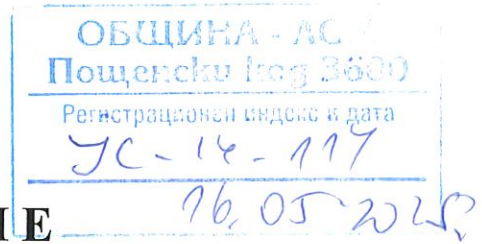 ОБЩИНА -
Пощенски код 3600
Регистрационен индекс и дата
УС-14-117
16.05 2025г.
Е